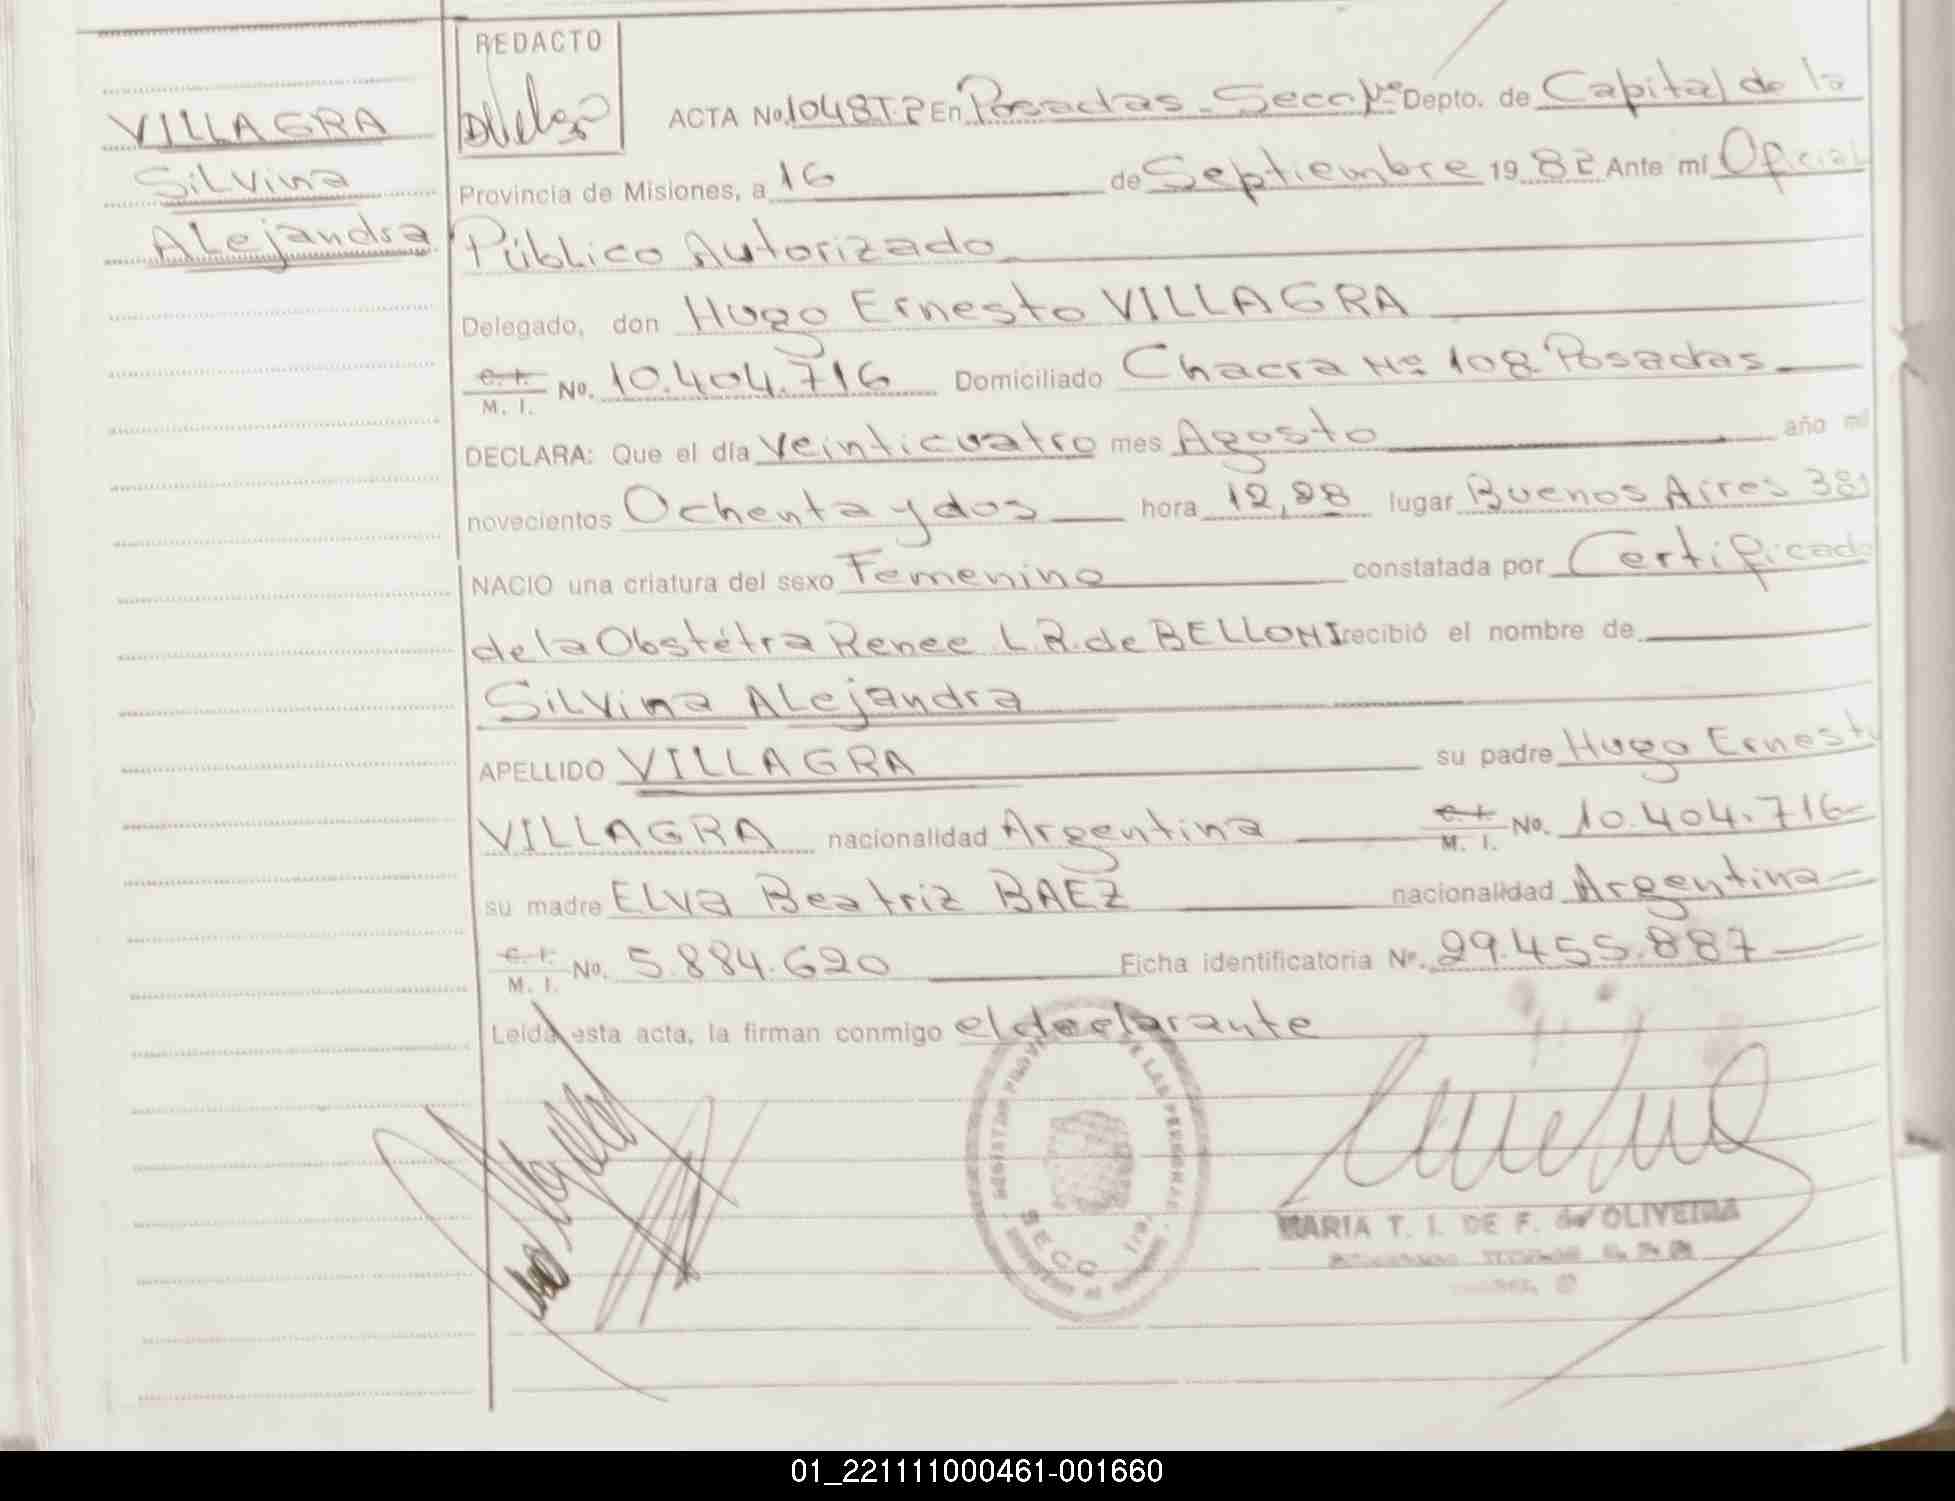 REDACTO
VILLAGRA
Silvina
Alejandra
ACTA No. 1048 T.2 En Posadas - Secc. 1ra Depto. de Capital de la
Provincia de Misiones, a 16 de Septiembre 19 82 Ante mí Oficial
Público Autorizado
Delegado, don Hugo Ernesto VILLAGRA
C. I. M. I. No. 10.404.716 Domiciliado Chacra Nº 108 Posadas
DECLARA: Que el día veinticuatro mes Agosto año mil
novecientos Ochenta y dos hora 12,28 lugar Buenos Aires 381
NACIO una criatura del sexo Femenino constatada por Certificado
de la Obstétra Renee L.R. de BELLONI recibió el nombre de
Silvina Alejandra
APELLIDO VILLAGRA su padre Hugo Ernesto
VILLAGRA nacionalidad Argentina C. I. M. I. No. 10.404.716
su madre Elva Beatriz BAEZ nacionalidad Argentina
C. I. M. I. No. 5.884.620 Ficha identificatoria Nº. 29.455.887
Leida esta acta, la firman conmigo el declarante
DE LAS PERSONAS
SECC 1ra
MARIA T. I. DE F. de OLIVEIRA
01_221111000461-001660